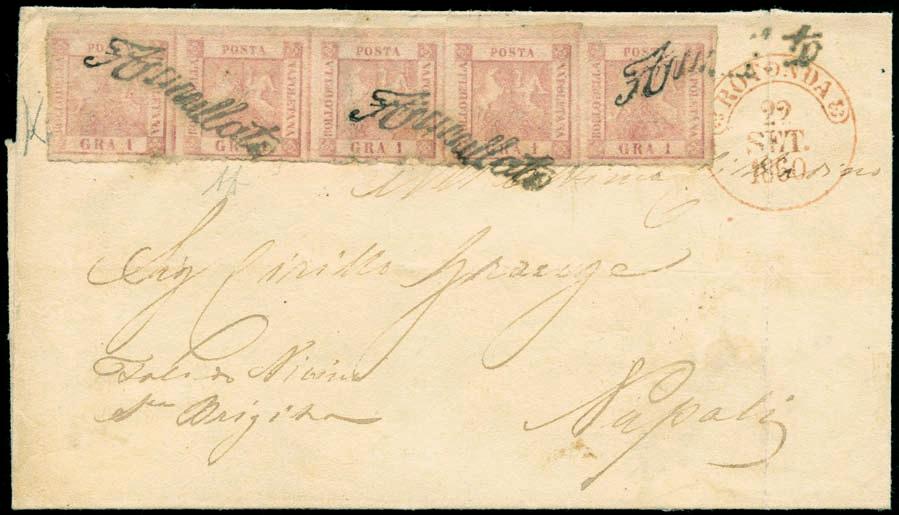 POSTA POSTA POSTA POSTA POSTA
BOLLO DELLA NAPOLETANA BOLLO DELLA NAPOLETANA BOLLO DELLA NAPOLETANA BOLLO DELLA NAPOLETANA BOLLO DELLA NAPOLETANA
GRA 1 GRA 1 GRA 1 GRA 1 GRA 1
Annullato
Annullato
ROTONDA
22
SET.
1860
Sig Cirillo
Toledo Vicino
Sta Brigida
Napoli